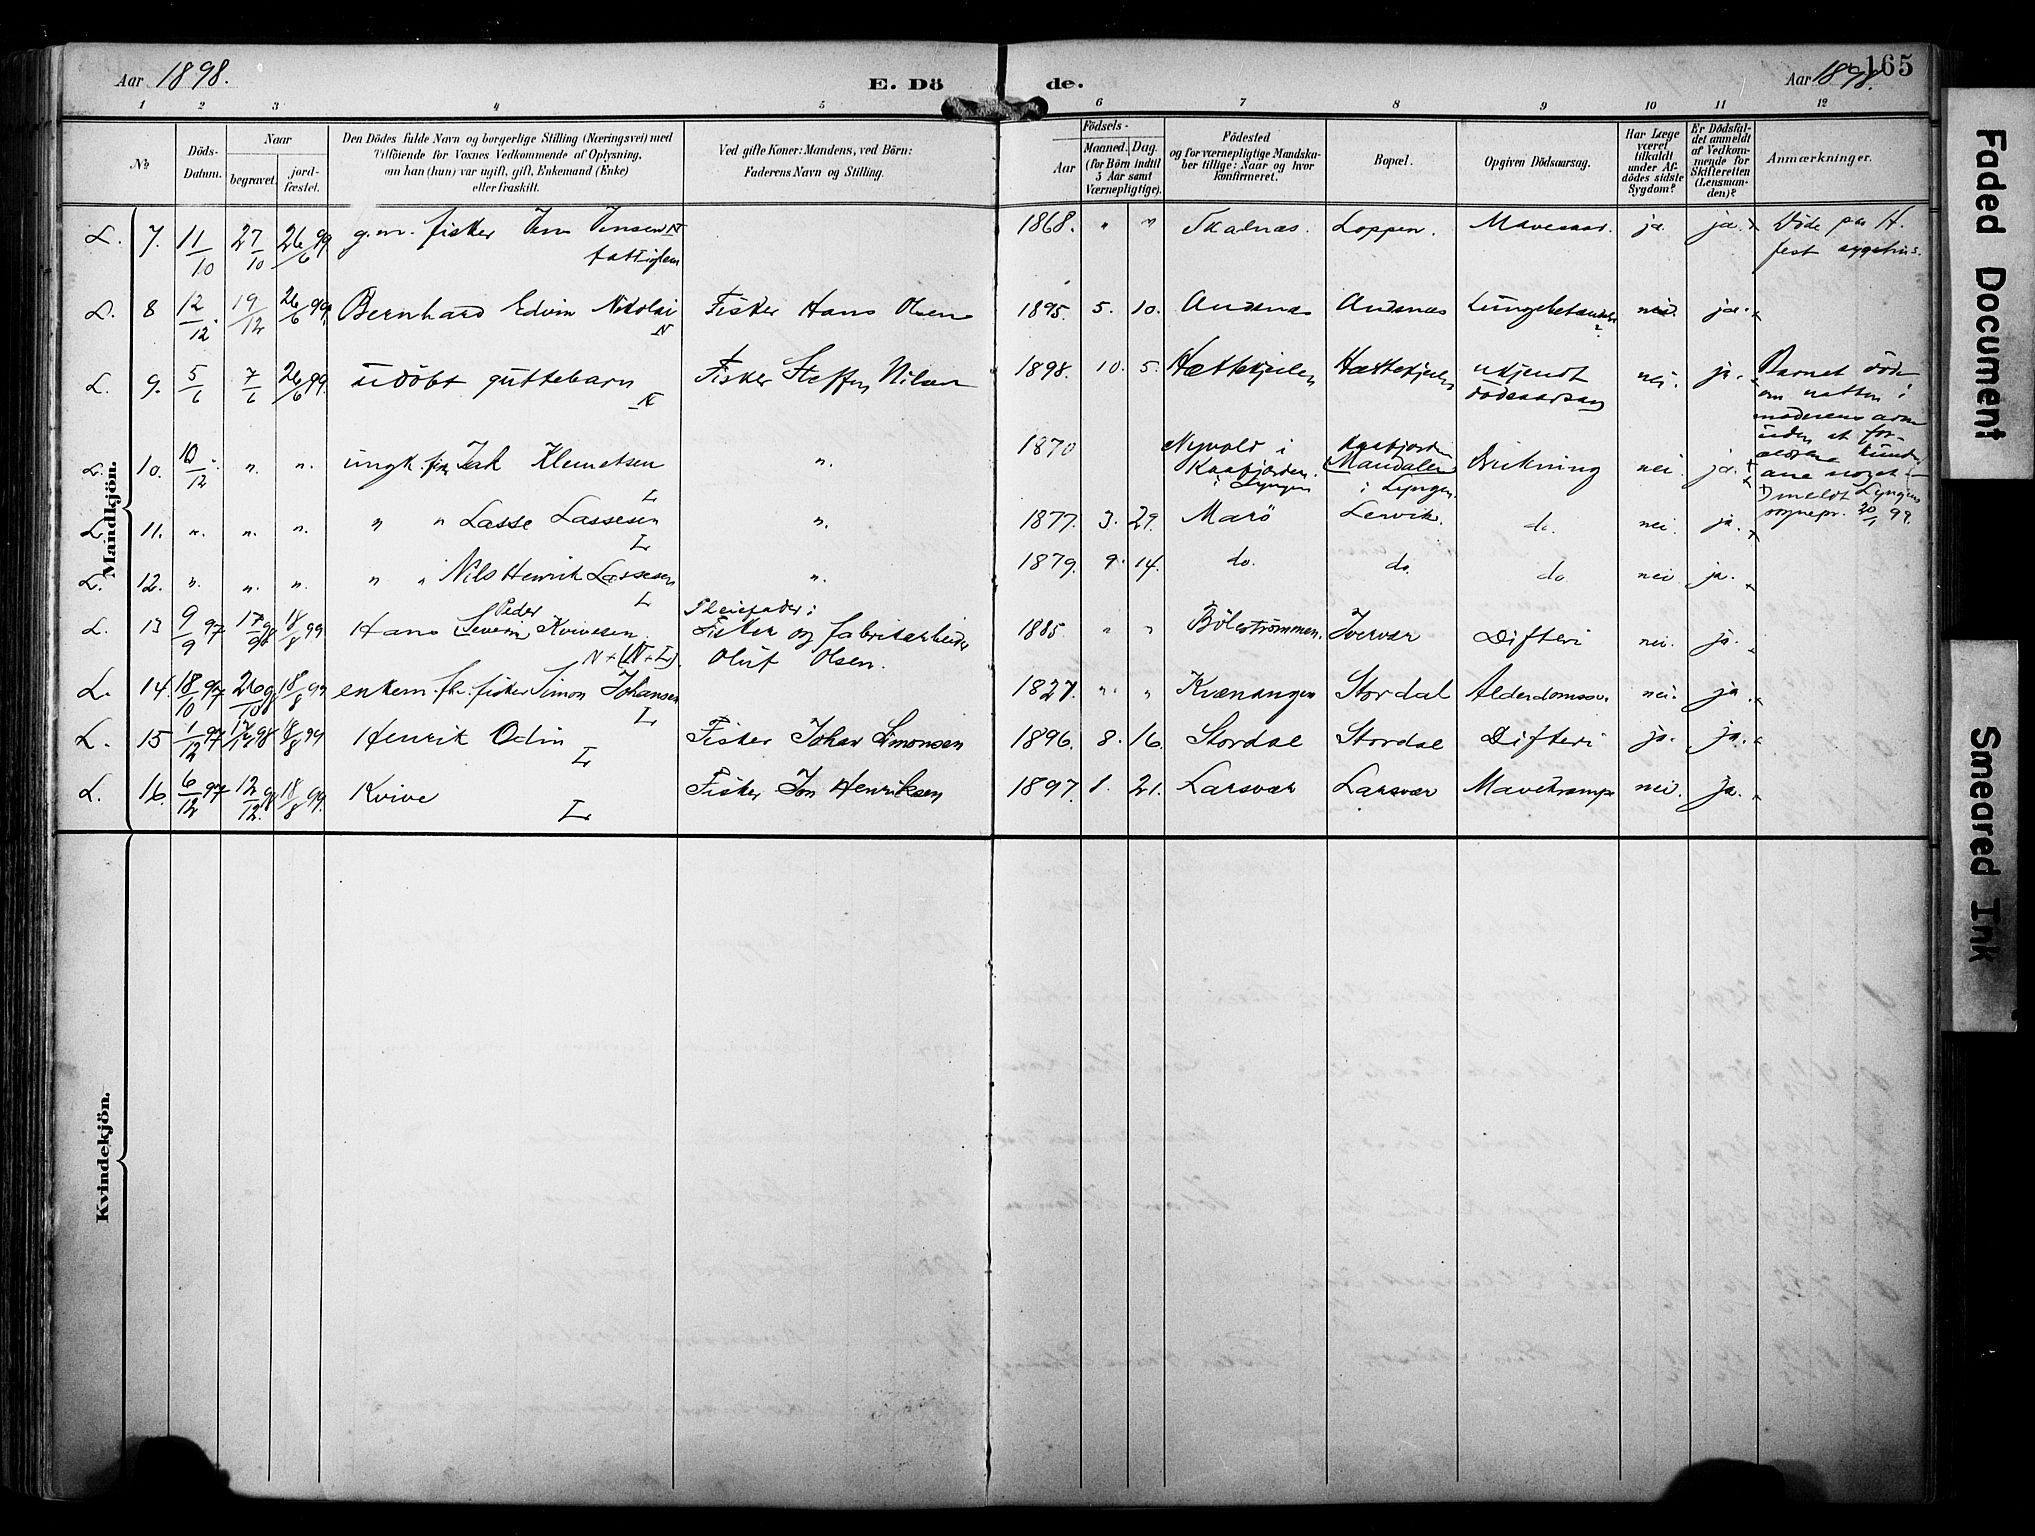 Aar 1898.
E. Dö de.
Aar 1898.
165
1 2 3 4 5 6 7 8 9 10 11 12
No
Döds-
Datum.
Naar
begravet.
jord-
fæstet.
Den Dödes fulde Navn og borgerlige Stilling (Næringsvei) med
Tilföiende for Voxnes Vedkommende af Oplysning,
om han (hun) var ugift, gift, Enkemand (Enke)
eller fraskilt.
Ved gifte Koner: Mandens, ved Börn:
Faderens Navn og Stilling.
Födsels-
Aar
Maaned. Dag.
(for Börn indtil
5 Aar samt
Værnepligtige).
Födested
og for værnepligtige Mandska-
ber tillige: Naar og hvor
konfirmeret.
Bopæl.
Opgiven Dödsaarsag.
Har Læge
været
tilkaldt
under Af-
dödes sidste
Sygdom?
Er Dödsfal-
det anmeldt
af Vedkom-
mende for
Skifteretten
(Lensman-
den)?
Anmærkninger.
Mandkjön.
L. 7. 11/10 27/10 26/6 99 g.m. fisker Jens Jensen N 1868. " " Skalnæs. Loppen. Mavesaar. ja. ja. Döde paa H.
fattiglem
fest sygehus.
L. 8 12/12 19/12 26/6 99. Bernhard Edvin Nikolai Fisker Hans Olsen 1895. 5. 10. Andsnæs Andsnæs nei. ja.
N
L. 9. 5/6 7/6 26/6 99. udöbt guttebarn Fisker Steffen Nilsen 1898. 10. 5. ukjendt nei. ja. Barnet döde
N
dödsaarsag
om natten i
moderens arm
uden at for-
ældrene kunde
ane noget
L. 10. 10/12 " " ungk. Isak Klemetsen " 1870 Nyvold i Kaafjorden Drukning nei. ja.
L
Kaafjorden Mandalen
i Lyngen i Lyngen.
meldt Lyngens
sognepr. 20/1 99.
L. 11. " " " " " Lasse Lassesen " 1877. 3. 29. Marö Lervik. do. nei. ja.
L
L. 12. " " " " " Nils Henrik Lassesen " 1879. 9. 14. do. do. do. nei. ja.
L
L. 13 9/9 97 17/9 98 18/8 99 Hans Peder Severin Kvivesen Pleiefader: 1885 " " Bölestrømmen. Joervær Difteri nei. ja.
N + (N + L).
Fisker og fabrikarbeider
Oluf Olsen.
L. 14. 18/10 97 26/10 98 18/8 99 enkem. fh. fisker Simon Johansen 1827. " " Kvænangen Stordal Alderdomssv. nei. ja
L
L. 15 1/12 97 12/12 98 18/8 99 Henrik Odin Fisker Johan Simonsen 1896. 8. 16. Stordal Stordal Difteri ja. ja.
L
L. 16. 6/12 97 12/12 98 18/8 99. Kvive Fisker Jon Henriksen 1897. 1. 21. Larsvær Larsvær Mavekrampe nei. ja.
L
Kvindekjön.
Faded Document
Smeared Ink